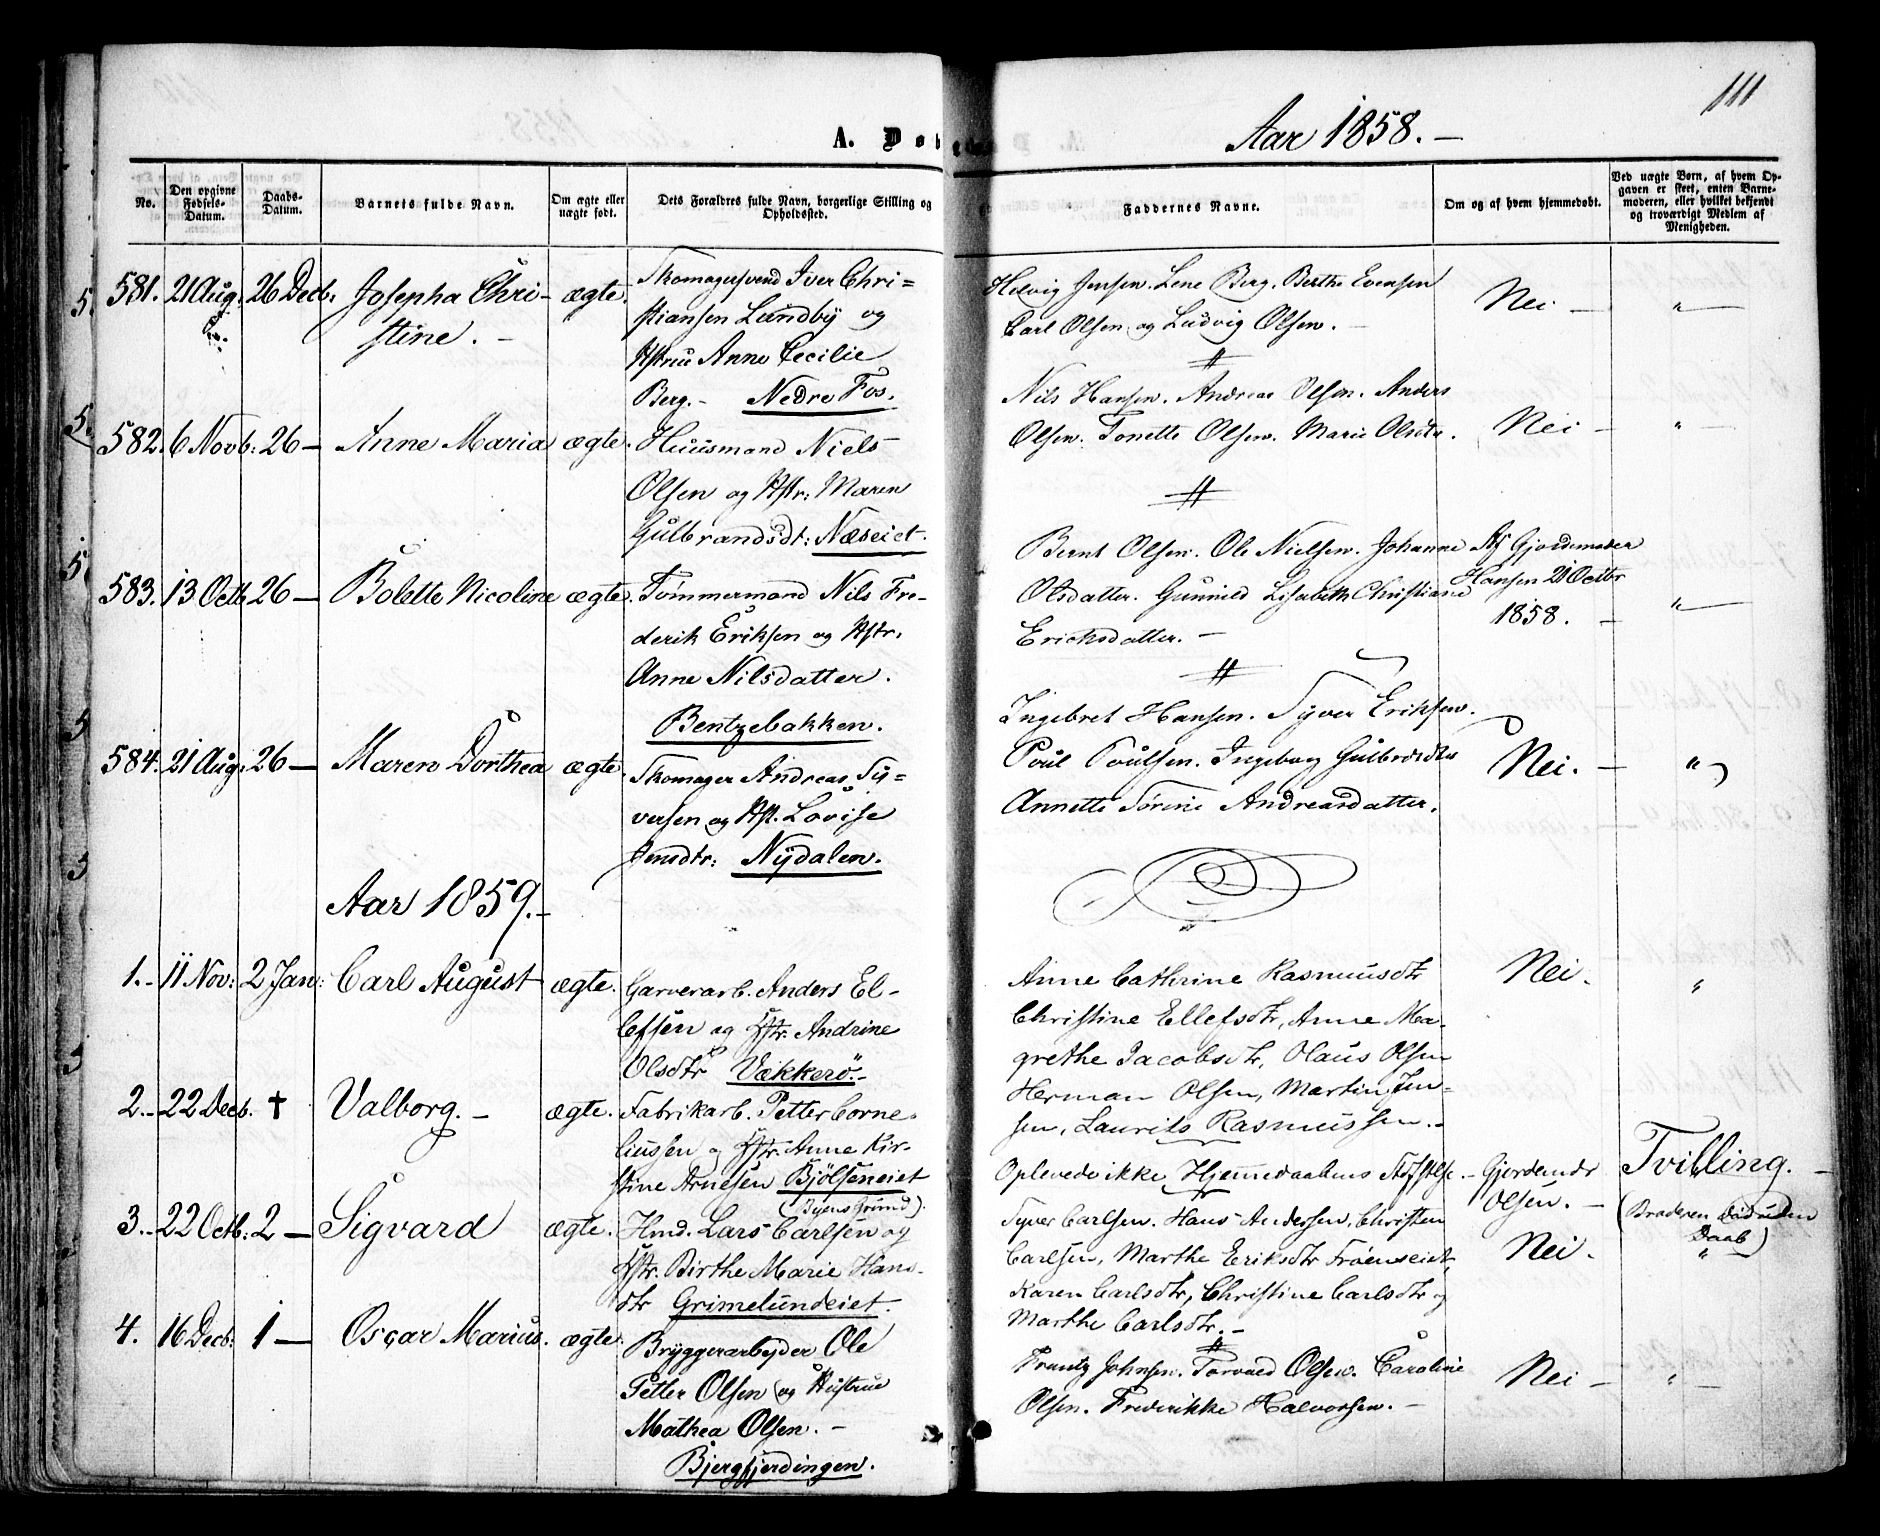 111
A. Døbte
Aar 1858. –
No.
Den opgivne Fødsels-Datum.
Daabs-Datum.
Barnets fulde Navn.
Om ægte eller uægte født.
Dets Forældres fulde Navn, borgerlige Stilling og Opholdssted.
Faddernes Navne.
Om og af hvem hjemmedøbt.
Ved uægte Børn, af hvem Opgaven er skeet, enten Barnemoderen, eller hvilket bekjendt og troværdigt Medlem af Menigheden.
581. 21 Aug. 26 Decb: Josepha Chri- ægte.
stine. –
Skomagersvend Iver Chri=
stiansen Lundby og
Hstru Anne Cecilie
Berg. – Nedre Fos.
Helvig Jensen. Lene Berg. Berthe Evensen
Carl Olsen og Ludvig Olsen. –
Nei – "
582. 6 Novb: 26 – Anne Maria ægte.
Huusmand Niels
Olsen og Hstr: Maren
Gulbrandsdt: Næseiet.
Nils Hansen. Andreas Olsen. Anders
Olsen. Tonette Olsen. Marie Olsdtr.
Nei – "
583. 13 Octb 26 – Bolette Nicoline ægte.
Tømmermand Nils Fre-
derik Eriksen og Hstr.
Anne Nilsdatter.
Bentzebakken.
Bernt Olsen. Ole Nielsen. Johanne
Olsdatter. Gunnild Lisabeth Christiane
Ericksdatter. –
Af Gjordemoder
Hansen 21 Octbr
1858. – "
584. 21 Aug. 26 – Maren Dorthea ægte.
Skomager Andreas Sy=
versen og Hst. Lovise
Jensdtr: Nydalen.
Ingebret Hansen. Syver Eriksen.
Poul Poulsen. Ingeborg Gulbrdsdtr
Annette Sørine Andreasdatter.
Nei. – "
Aar 1859. –
1. – 11 Nov: 2 Jan: Carl August ægte.
Garverarb. Anders El-
lefsen og Hstr. Andrine
Olsdtr Vækkerö. –
Anne Cathrine Rasmusdtr
Christine Ellefsdtr, Anne Ma-
grethe Jacobsdtr, Olaus Olsen
Herman Olsen, Martin Jen-
sen, Laurits Rasmussen. –
Nei. "
2. – 22 Decb. † Valborg. – ægte.
Fabrikarb. Petter Corne-
liussen og Hstr. Anne Kir-
stine Arnesen Bjölseneiet
(Byens Grund).
Oplevede ikke Hjemmedaabens Stadfstelse. –
Gjordemdr
Olsen. –
Tvilling. –
(Broderen död uden
Daab)
3. – 22 Octb: 2 – Sigvard ægte.
Hmd. Lars Carlsen og
Hstr. Birthe Marie Hans-
dtr Grimelundeiet.
Syver Carlsen. Hans Andersen, Christen
Carlsen, Marthe Eriksdtr Fröenseiet,
Karen Carlsdtr, Christine Carlsdtr og
Marthe Carlsdtr. –
Nei. "
4. 16 Decb: 1 – Oscar Marius. ægte.
Bryggerarbejder Ole
Petter Olsen og Hustrue
Mathea Olsen. –
Bjergfjerdingen.
Frantz Johnsen. Torvald Olsen. Caroline
Olsen. Frederikke Halvorsen. –
Nei – "